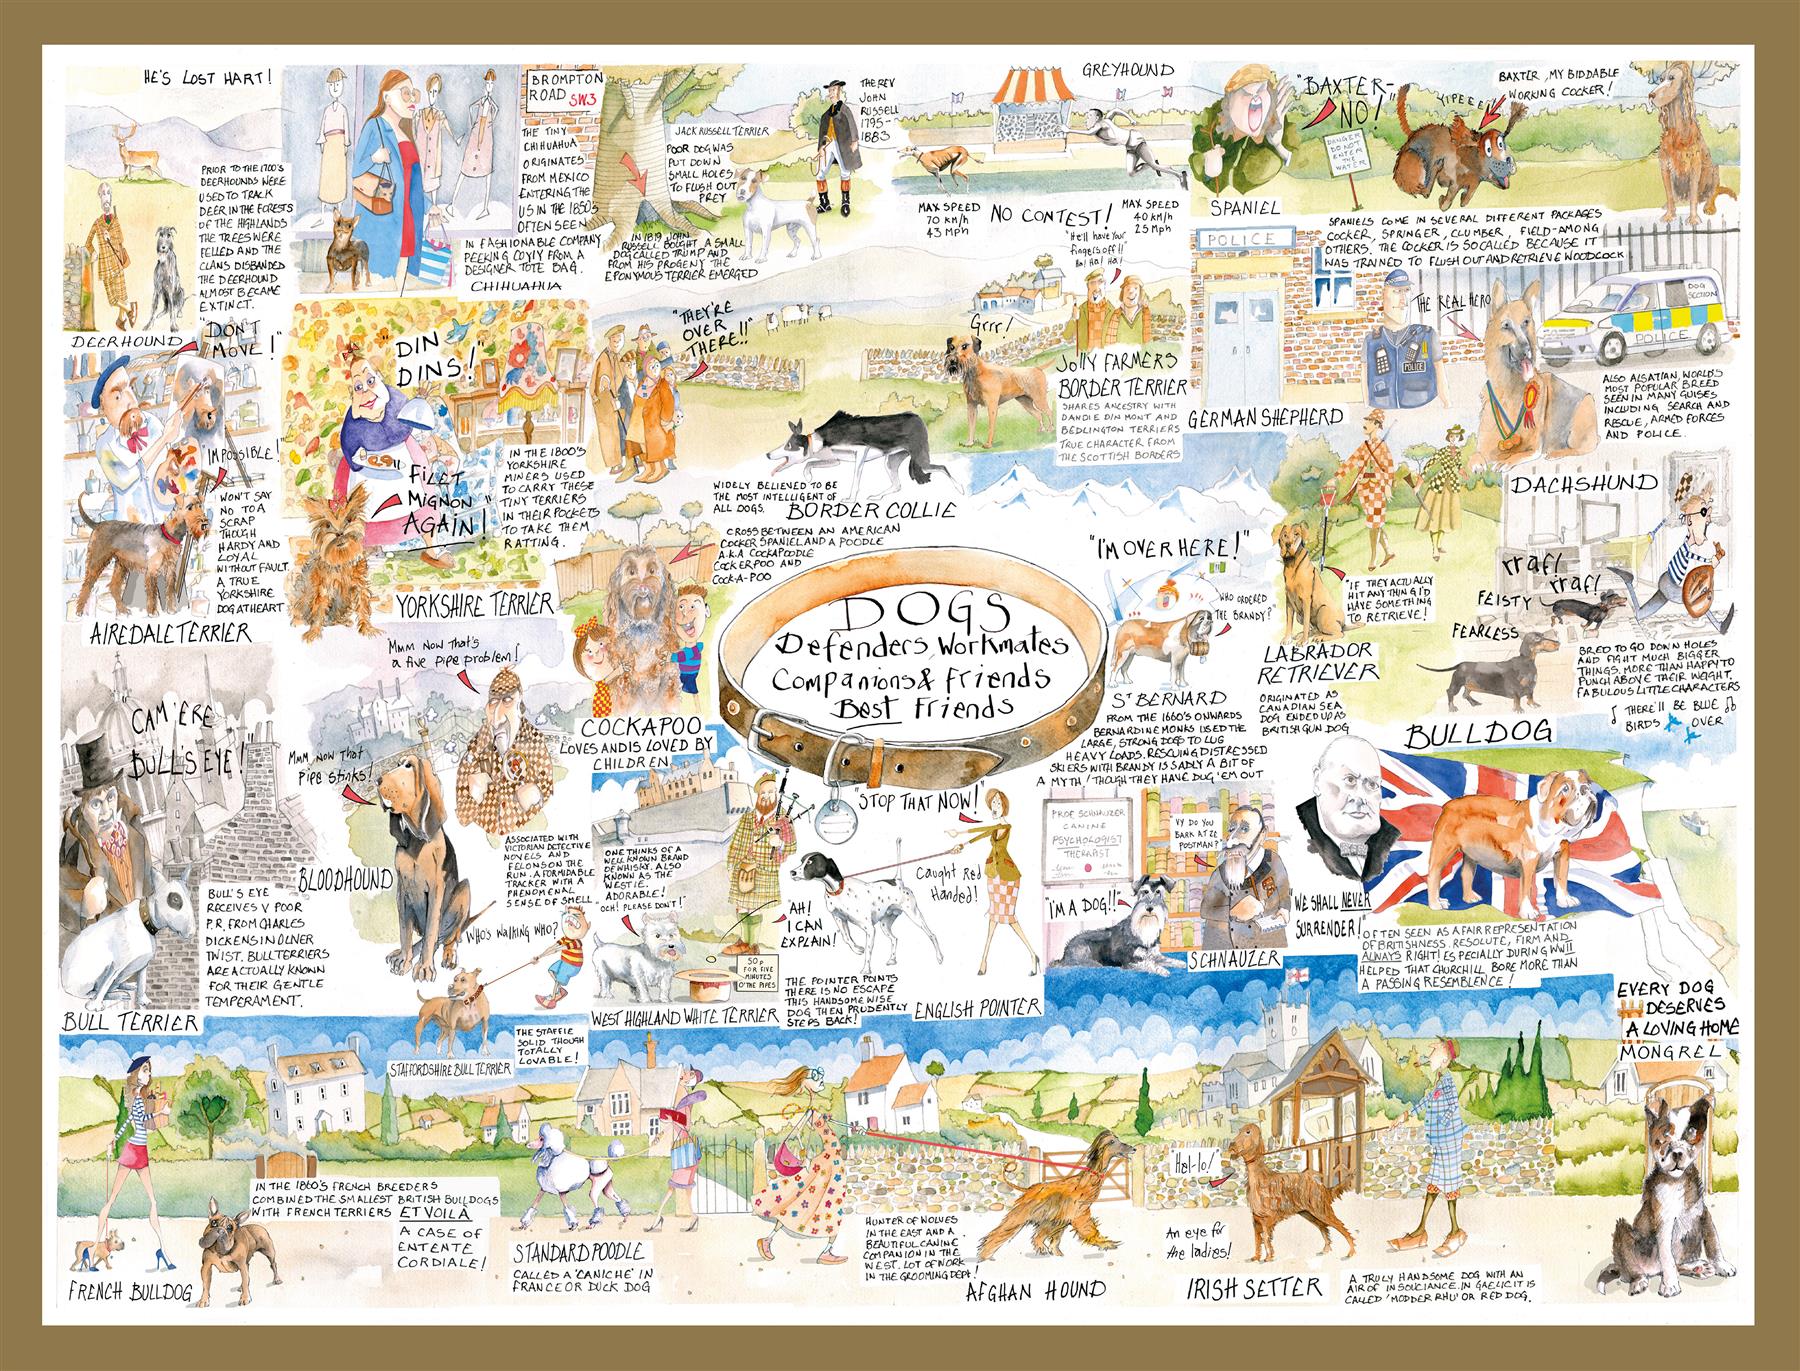 HE'S LOST HART!
PRIOR TO THE 1700'S
DEERHOUNDS WERE
USED TO TRACK
DEER IN THE FORESTS
OF THE HIGHLANDS
THE TREES WERE
FELLED AND THE
CLANS DISBANDED
THE DEERHOUND
ALMOST BECAME
EXTINCT.
DEERHOUND
BROMPTON
ROAD SW3
THE TINY
CHIHUAHUA
ORIGINATES
FROM MEXICO
ENTERING THE
US IN THE 1850s
OFTEN SEEN
IN FASHIONABLE COMPANY
PEEKING COYLY FROM A
DESIGNER TOTE BAG.
CHIHUAHUA
JACK RUSSELL TERRIER
POOR DOG WAS
PUT DOWN
SMALL HOLES
TO FLUSH OUT
PREY
THE REV
JOHN
RUSSELL
1795-
1883
IN 1819 JOHN
RUSSELL BOUGHT A SMALL
DOG CALLED TRUMP AND
FROM HIS PROGENY THE
EPONYMOUS TERRIER EMERGED
GREYHOUND
MAX SPEED
70 KM/H
43 MPH
NO CONTEST!
MAX SPEED
40 KM/H
25 MPH
"BAXTER-
NO!"
DANGER
DO NOT
ENTER
THE
WATER
YIPEEE!
BAXTER, MY BIDDABLE
WORKING COCKER!
SPANIEL
SPANIELS COME IN SEVERAL DIFFERENT PACKAGES
COCKER, SPRINGER, CLUMBER, FIELD-AMONG
OTHERS. THE COCKER IS SO CALLED BECAUSE IT
WAS TRAINED TO FLUSH OUT AND RETRIEVE WOODCOCK
"DON'T
MOVE!"
IMPOSSIBLE!
WON'T SAY
NO TO A
SCRAP
THOUGH
HARDY AND
LOYAL
WITHOUT FAULT.
A TRUE
YORKSHIRE
DOG AT HEART
AIREDALE TERRIER
"DIN
DINS!"
"FILET
MIGNON
AGAIN!"
IN THE 1800'S
YORKSHIRE
MINERS USED
TO CARRY THESE
TINY TERRIERS
IN THEIR POCKETS
TO TAKE THEM
RATTING.
YORKSHIRE TERRIER
"THEY'RE
OVER
THERE!!"
WIDELY BELIEVED TO BE
THE MOST INTELLIGENT OF
ALL DOGS.
BORDER COLLIE
"He'll have your
fingers off!!"
Ha! Ha! Ha!
Grrr!
JOLLY FARMERS
BORDER TERRIER
SHARES ANCESTRY WITH
DANDIE DINMONT AND
BEDLINGTON TERRIERS
TRUE CHARACTER FROM
THE SCOTTISH BORDERS
POLICE
THE REAL HERO
POLICE
DOG
SECTION
POLICE
GERMAN SHEPHERD
ALSO ALSATIAN, WORLD'S
MOST POPULAR BREED
SEEN IN MANY GUISES
INCLUDING SEARCH AND
RESCUE, ARMED FORCES
AND POLICE.
CROSS BETWEEN AN AMERICAN
COCKER SPANIEL AND A POODLE
A.K.A COCKAPOODLE
COCKERPOO AND
COCK-A-POO
COCKAPOO
LOVES AND IS LOVED BY
CHILDREN
DOGS
Defenders, Workmates
Companions & Friends
Best Friends
"I'M OVER HERE!"
"WHO ORDERED
THE BRANDY?"
ST BERNARD
FROM THE 1660'S ONWARDS
BERNARDINE MONKS USED THE
LARGE, STRONG DOGS TO LUG
HEAVY LOADS. RESCUING DISTRESSED
SKIERS WITH BRANDY IS SADLY A BIT OF
A MYTH! THOUGH THEY HAVE DUG 'EM OUT
"IF THEY ACTUALLY
HIT ANYTHING I'D
HAVE SOMETHING
TO RETRIEVE!
LABRADOR
RETRIEVER
ORIGINATED AS
CANADIAN SEA
DOG ENDED UP AS
BRITISH GUN DOG
DACHSHUND
rraf!
rraf!
FEISTY
FEARLESS
BRED TO GO DOWN HOLES
AND FIGHT MUCH BIGGER
THINGS. MORE THAN HAPPY TO
PUNCH ABOVE THEIR WEIGHT.
FABULOUS LITTLE CHARACTERS
THERE'LL BE BLUE
BIRDS OVER
"CAM 'ERE
BULL'S EYE!"
BULL'S EYE
RECEIVES V POOR
P.R. FROM CHARLES
DICKENS IN OLIVER
TWIST. BULL TERRIERS
ARE ACTUALLY KNOWN
FOR THEIR GENTLE
TEMPERAMENT.
BULL TERRIER
Mmm now that's
a five pipe problem!
Mmm now that
pipe stinks!
BLOODHOUND
ASSOCIATED WITH
VICTORIAN DETECTIVE
NOVELS AND
FELONS ON THE
RUN. A FORMIDABLE
TRACKER WITH A
PHENOMENAL
SENSE OF SMELL
WHO'S WALKING WHO?
STAFFORDSHIRE BULL TERRIER
THE STAFFIE
SOLID THOUGH
TOTALLY
LOVABLE!
ONE THINKS OF A
WELL KNOWN BRAND
OF WHISKY. ALSO
KNOWN AS THE
WESTIE.
ADORABLE!
"OCH! PLEASE DON'T!"
50p
FOR FIVE
MINUTES
O' THE PIPES
WEST HIGHLAND WHITE TERRIER
"STOP THAT NOW!"
"AH!
I CAN
EXPLAIN!
Caught Red
Handed!
THE POINTER POINTS
THERE IS NO ESCAPE
THIS HANDSOME WISE
DOG THEN PRUDENTLY
STEPS BACK!
ENGLISH POINTER
PROF SCHNAUZER
CANINE
PSYCHOLOGIST
THERAPIST
VY DO YOU
BARK AT ZE
POSTMAN?"
"I'M A DOG!!"
SCHNAUZER
BULLDOG
"WE SHALL NEVER
SURRENDER!"
OFTEN SEEN AS A FAIR REPRESENTATION
OF BRITISHNESS. RESOLUTE, FIRM AND
ALWAYS RIGHT! ESPECIALLY DURING WWII
HELPED THAT CHURCHILL BORE MORE THAN
A PASSING RESEMBLENCE!
EVERY DOG
DESERVES
A LOVING HOME
MONGREL
IN THE 1860'S FRENCH BREEDERS
COMBINED THE SMALLEST BRITISH BULLDOGS
WITH FRENCH TERRIERS ET VOILÀ
A CASE OF
ENTENTE
CORDIALE!
FRENCH BULLDOG
STANDARD POODLE
CALLED A 'CANICHE' IN
FRANCE OR DUCK DOG
HUNTER OF WOLVES
IN THE EAST AND A
BEAUTIFUL CANINE
COMPANION IN THE
WEST. LOT OF WORK
IN THE GROOMING DEPT!
AFGHAN HOUND
"Hal-lo!"
An eye for
the ladies!
IRISH SETTER
A TRULY HANDSOME DOG WITH AN
AIR OF INSOUCIANCE. IN GAELIC IT IS
CALLED 'MODDER RHU' OR RED DOG.